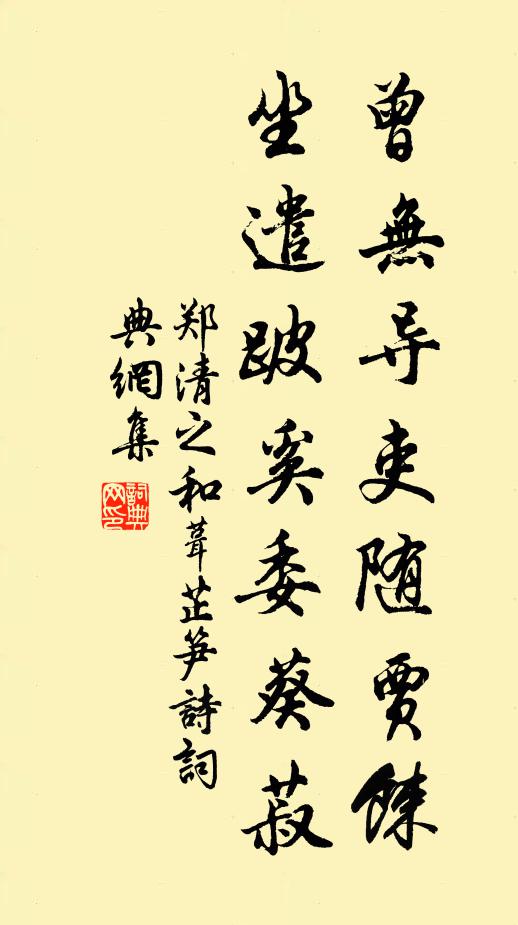 曾無导吏随賈餗
坐遣跛奚委葵菽
郑清之和葺芷笋詩詞
典網集
詞典
网印